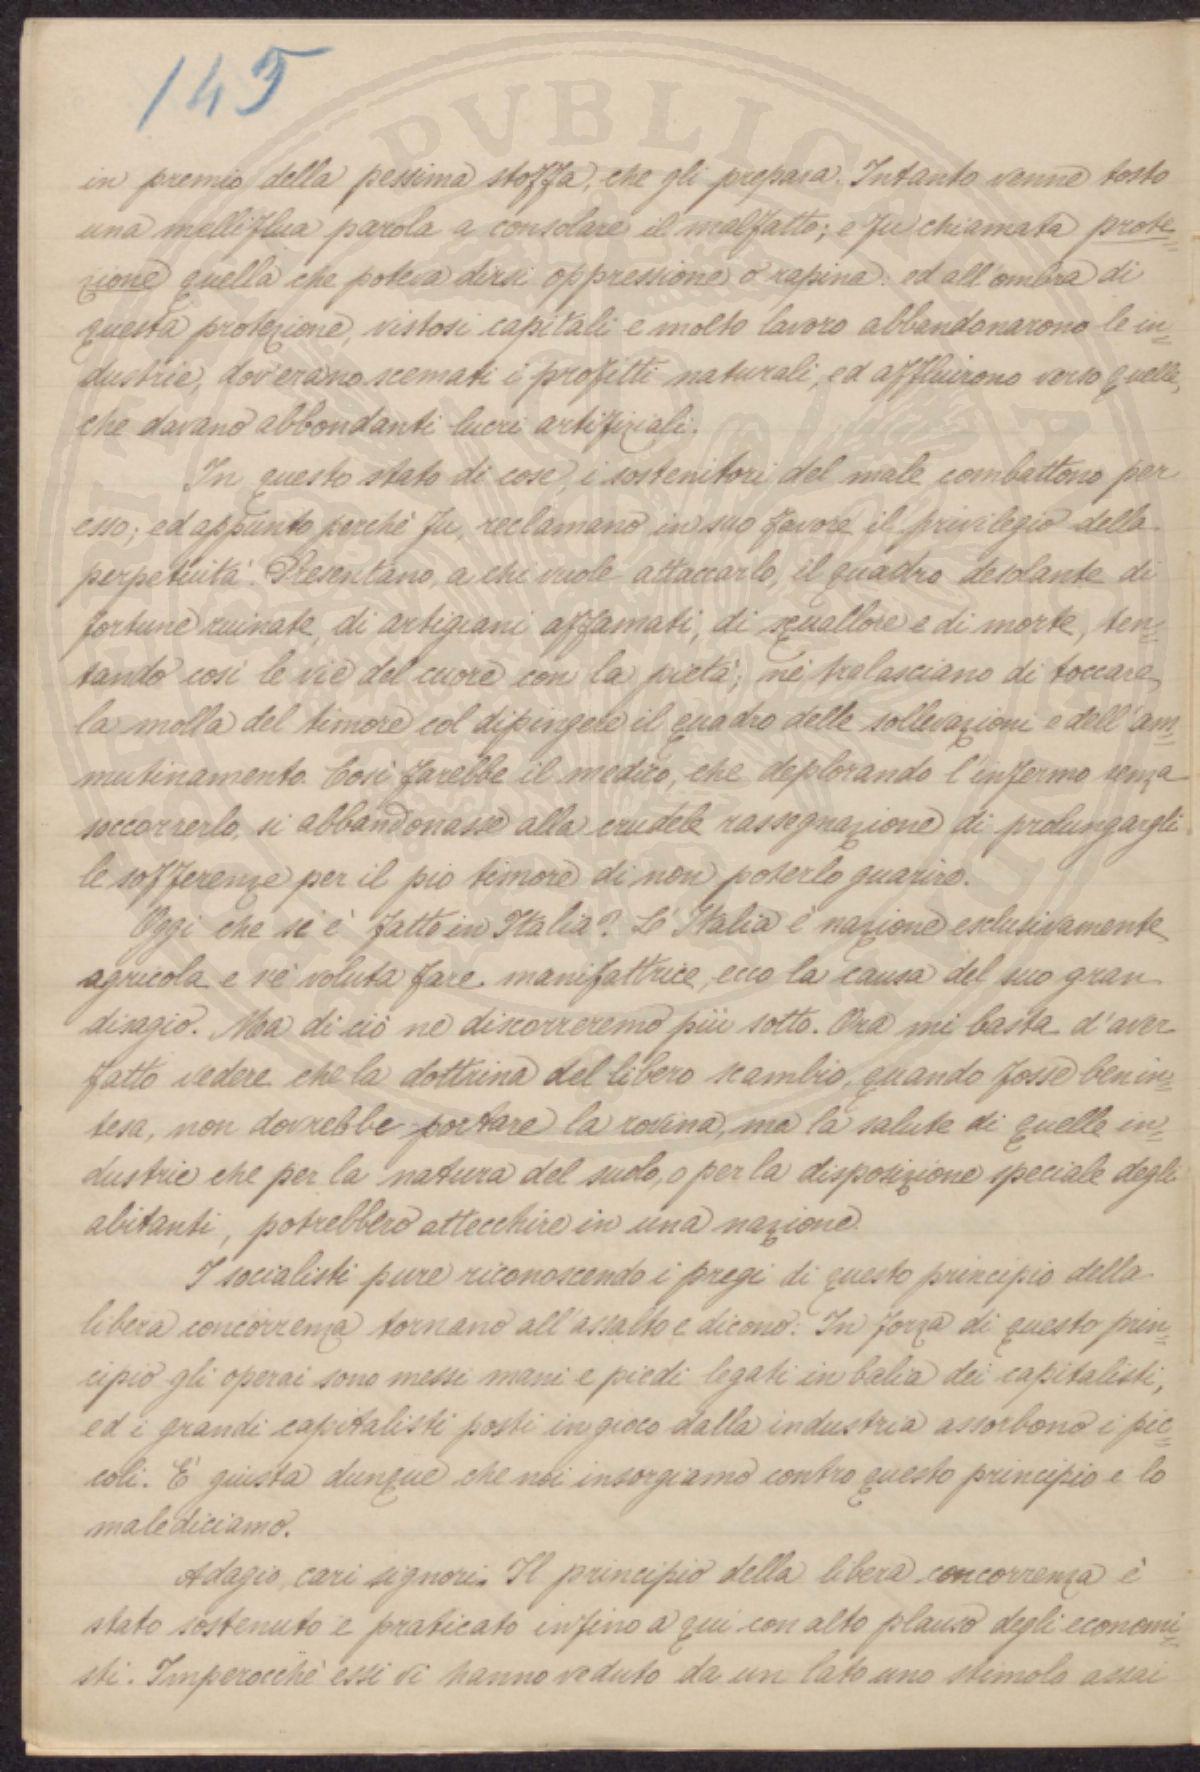 145
in premio della pessima stoffa, che gli prepara. Intanto venne tosto
una melliflua parola a consolare il malfatto; e fu chiamata prote=
zione quella che poteva dirsi oppressione o rapina: ed all'ombra di
questa protezione, vistosi capitali e molto lavoro abbandonarono le in=
dustrie, dov'erano scemati i profitti naturali, ed affluirono verso quelle,
che davano abbondanti lucri artifiziali.
In questo stato di cose, i sostenitori del male combattono per
esso; ed appunto perchè fu, reclamano in suo favore il privilegio della
perpetuità. Presentano, a chi vuole attaccarlo, il quadro desolante di
fortune ruinate, di artigiani affamati, di squallore e di morte, ten=
tando così le vie del cuore con la pietà; nè tralasciano di toccare
la molla del timore col dipingere il quadro delle sollevazioni e dell'am=
mutinamento. Così farebbe il medico, che deplorando l'infermo senza
soccorrerlo, si abbandonasse alla crudele rassegnazione di prolungargli
le sofferenze per il pio timore di non poterlo guarire.
Oggi che si è fatto in Italia? L'Italia è nazione esclusivamente
agricola e s'è voluta fare manifattrice, ecco la causa del suo gran
disagio. Ma di ciò ne discorreremo più sotto. Ora mi basta d'aver
fatto vedere che la dottrina del libero scambio, quando fosse ben in=
tesa, non dovrebbe portare la rovina, ma la salute di quelle in=
dustrie che per la natura del suolo, o per la disposizione speciale degli
abitanti, potrebbero attecchire in una nazione.
I socialisti pure riconoscendo i pregi di questo principio della
libera concorrenza tornano all'assalto e dicono: In forza di questo prin=
cipio gli operai sono messi mani e piedi legati in balia dei capitalisti,
ed i grandi capitalisti posti in gioco dalla industria assorbono i pic=
coli. È giusta dunque che noi insorgiamo contro questo principio e lo
malediciamo.
Adagio, cari signori. Il principio della libera concorrenza è
stato sostenuto e praticato infino a qui con alto plauso degli economi=
sti. Imperocchè essi vi hanno veduto da un lato uno stimolo assai